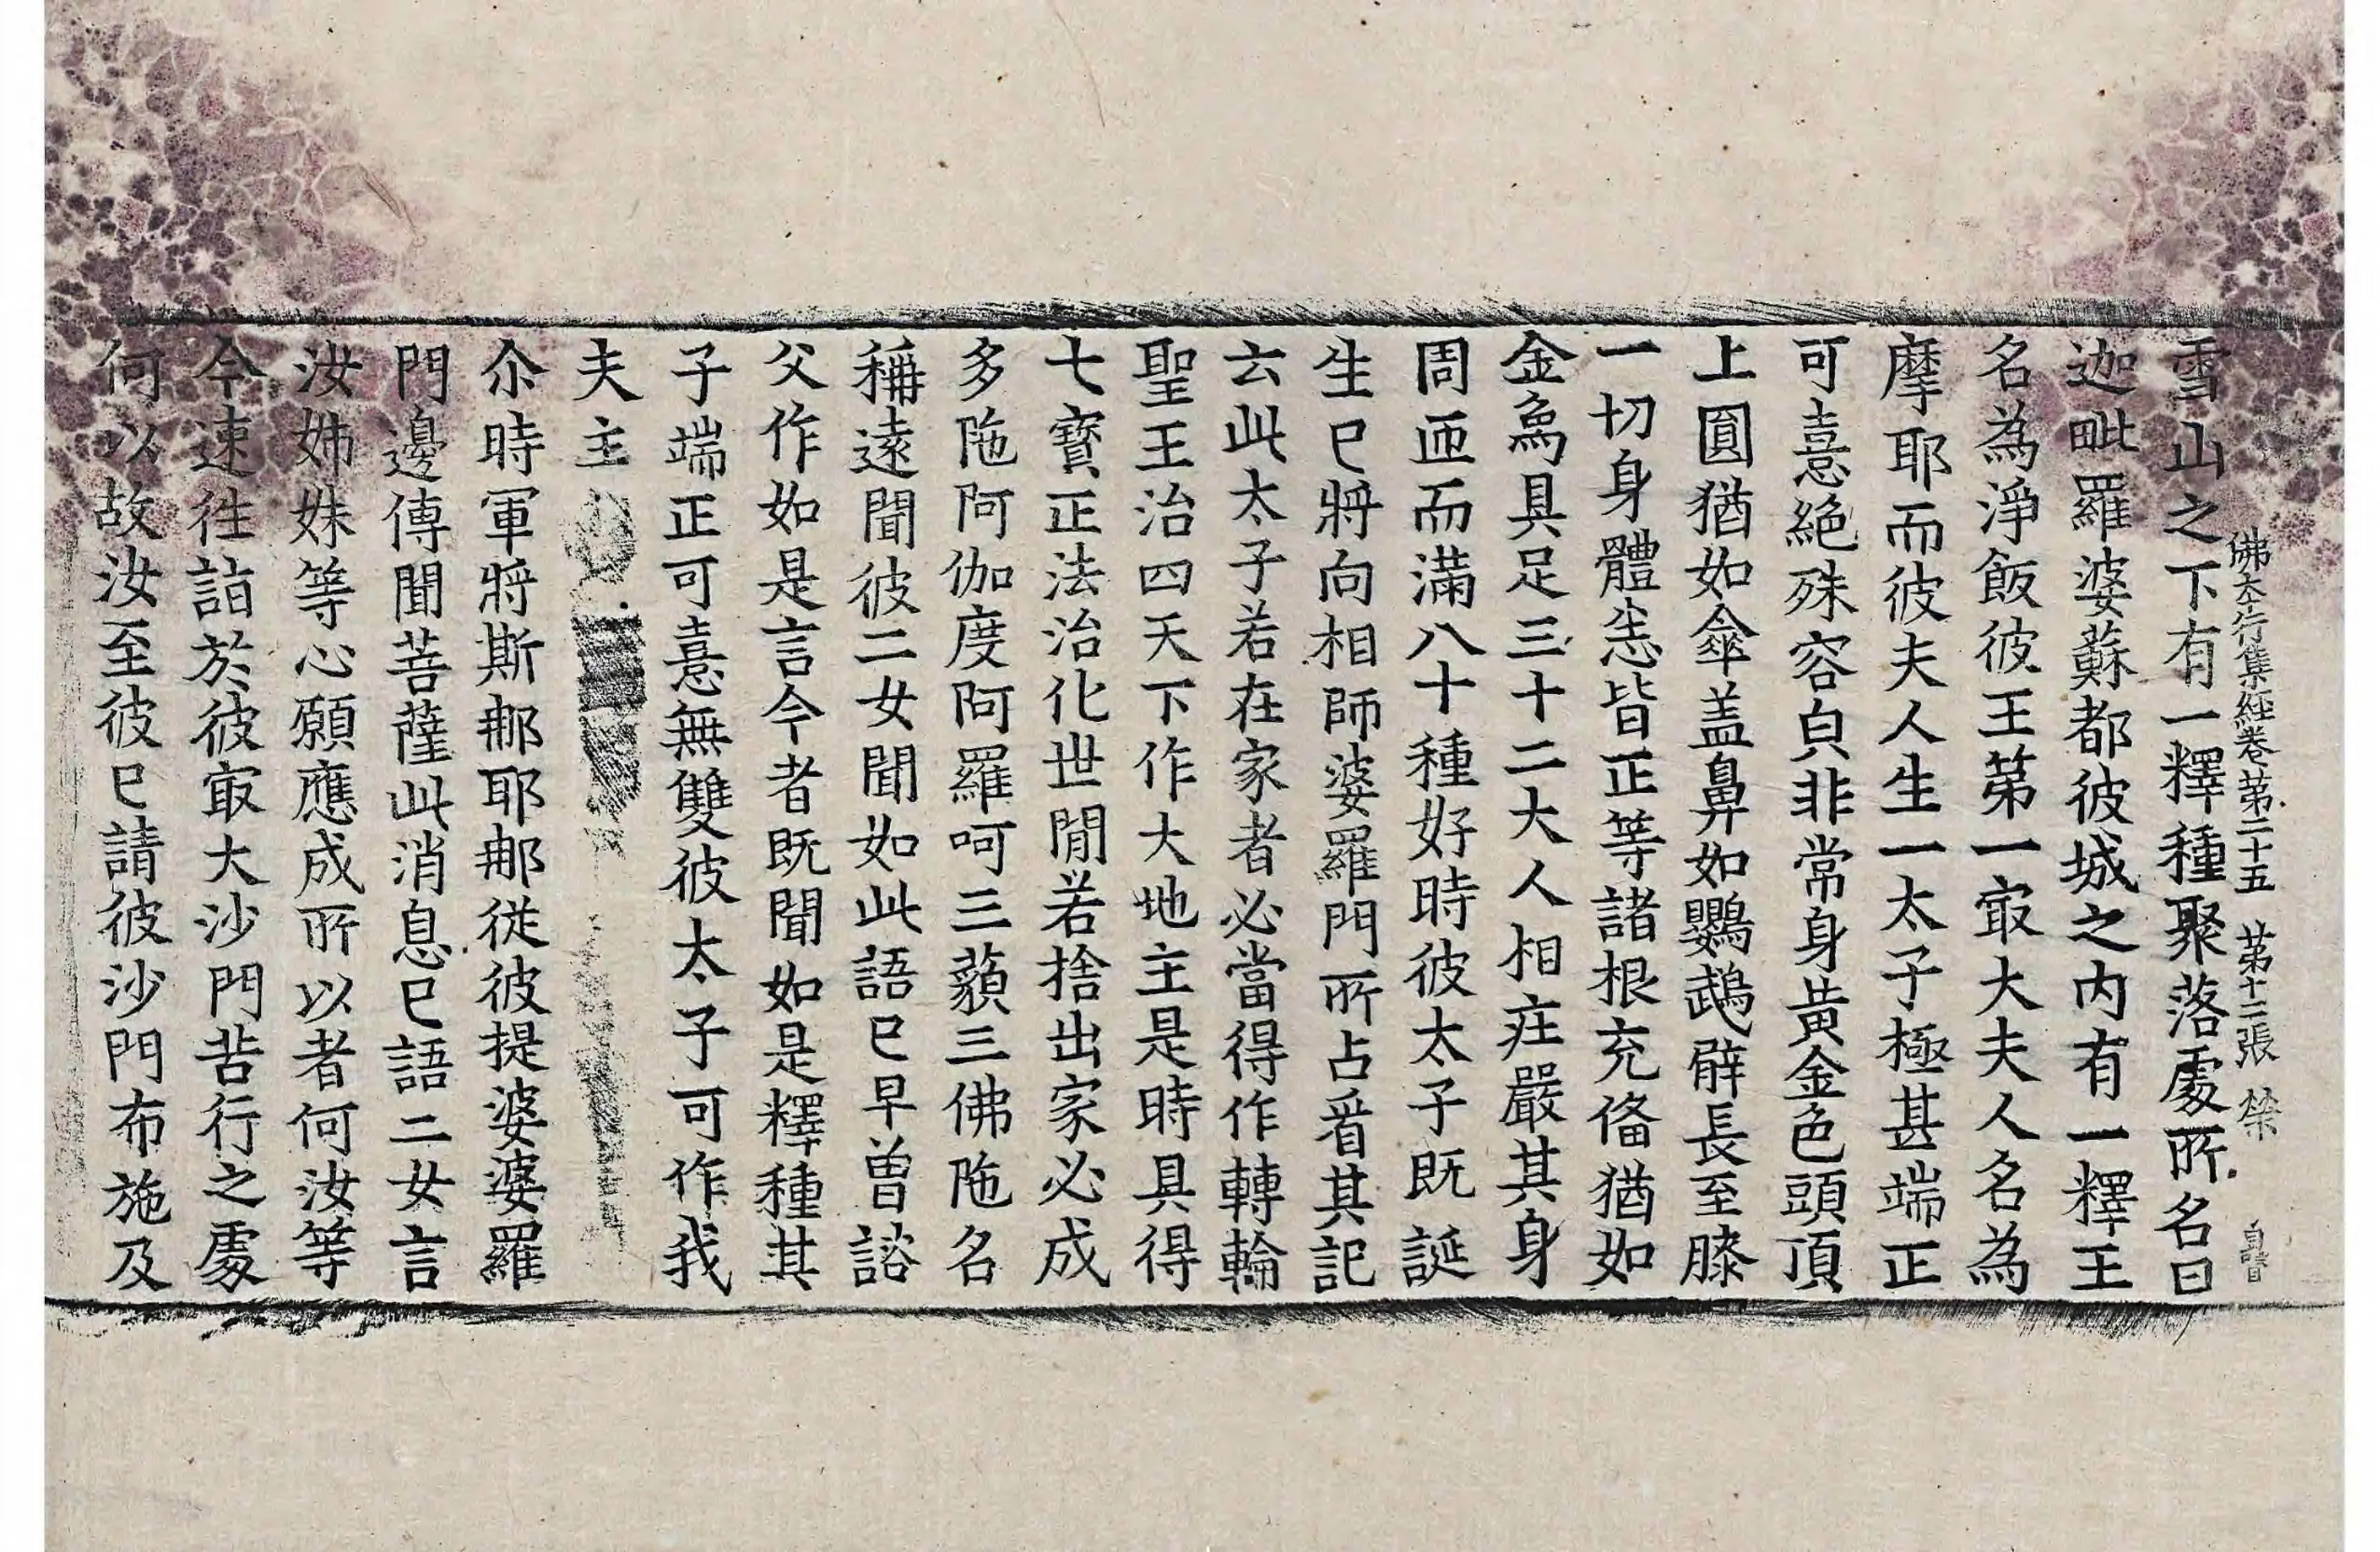 佛本行集經卷第二十五 第十二張 榮
雪山之下有一釋種聚落處所名曰
迦毗羅婆蘇都彼城之内有一釋王
名為淨飯彼王第一㝡大夫人名為
摩耶而彼夫人生一太子極甚端正
可憙絕殊容皃非常身黃金色頭頂
上圓猶如傘盖鼻如鸚鵡臂長至膝
一切身體恙皆正等諸根充俻猶如
金爲具足三十二大人相庄嚴其身
周迊而滿八十種好時彼太子既誕
生已將向相師婆羅門所占㸔其記
云此太子若在家者必當得作轉輪
聖王治四天下作大地主是時具得
七寶正法治化世閒若捨出家必成
多陁阿伽度阿羅呵三藐三佛陁名
稱遠聞彼二女聞如此語已早曾諮
父作如是言今者既聞如是釋種其
子端正可憙無雙彼太子可作我
夫主
尒時軍將斯那耶那從彼提婆婆羅
門邊傳聞菩薩此消息已語二女言
汝姊妹等心願應成所以者何汝等
今速往詣於彼㝡大沙門苦行之處
何以故汝至彼已請彼沙門布施及